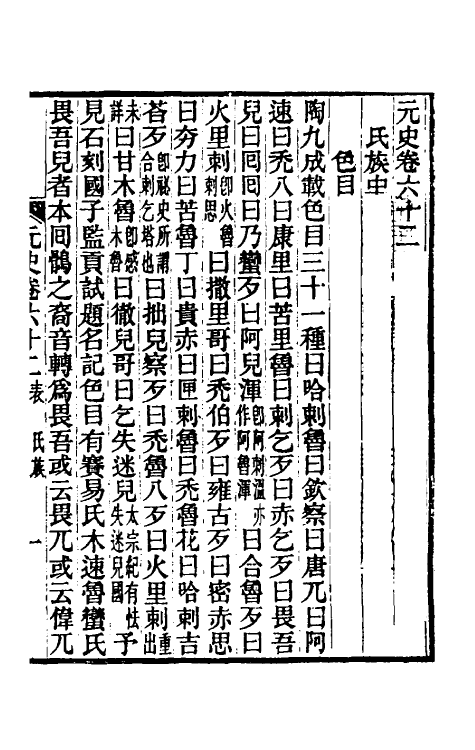 元史卷六十二
氏族中
色目
陶九成載色目三十一種曰哈剌魯曰欽察曰唐兀曰阿
速曰禿八曰康里曰苦里魯曰剌乞歹曰赤乞歹曰畏吾
兒曰回回曰乃蠻歹曰阿兒渾卽阿剌溫亦作阿魯渾曰合魯歹曰
火里剌卽火魯剌思曰撒里哥曰禿伯歹曰雍古歹曰密赤思
曰夯力曰苦魯丁曰貴赤曰匣剌魯曰禿魯花曰哈剌吉
荅歹卽祕史所謂合剌乞塔也曰拙兒察歹曰禿魯八歹曰火里剌重出
未詳曰甘木魯卽感木魯曰徹兒哥曰乞失迷兒太宗紀有怯失迷兒國予
見石刻國子監貢試題名記色目有賽易氏木速魯蠻氏
畏吾兒者本回鶻之裔音轉爲畏吾或云畏兀或云偉兀
元史卷六十二表 氏族 一